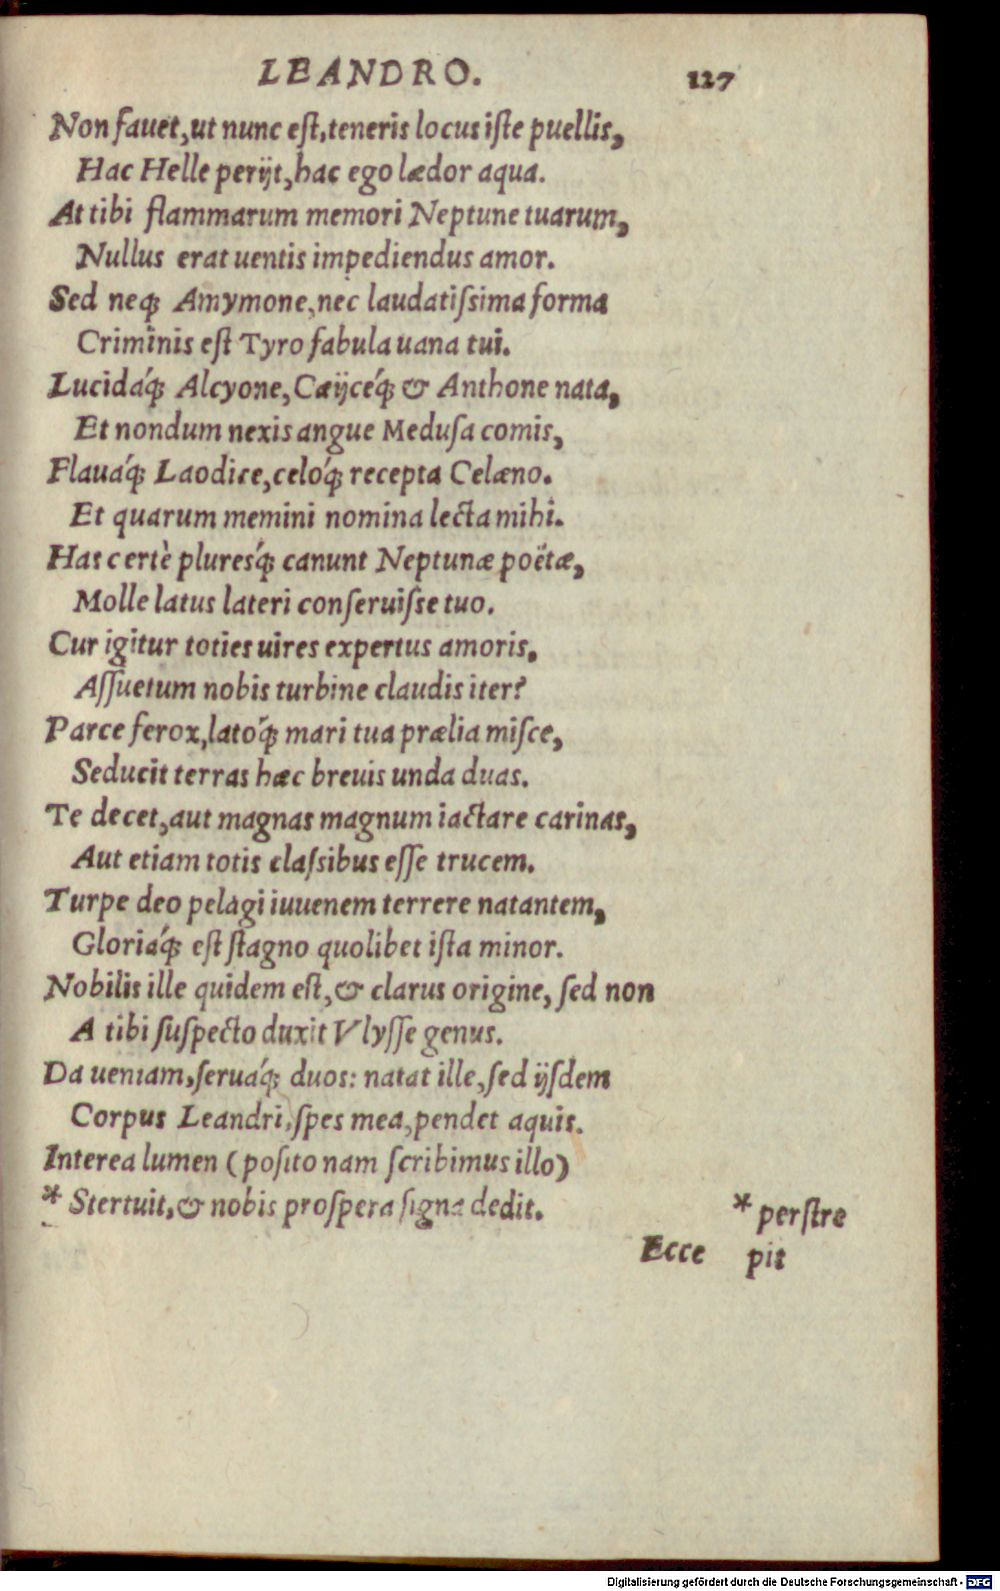 LEANDRO. 127
Non fauet, ut nunc eſt, teneris locus iſte puellis,
Hac Helle perijt, hac ego lædor aqua.
At tibi flammarum memori Neptune tuarum,
Nullus erat uentis impediendus amor.
Sed neqꝫ Amymone, nec laudatiſsima forma
Criminis eſt Tyro fabula uana tui.
Lucidáqꝫ Alcyone, Cæijcéqꝫ & Anthone nata,
Et nondum nexis angue Meduſa comis,
Flauáqꝫ Laodice, celóqꝫ recepta Celæno.
Et quarum memini nomina lecta mihi.
Has certè pluresq́ꝫ canunt Neptunæ poëtæ,
Molle latus lateri conſeruiſse tuo.
Cur igitur toties uires expertus amoris,
Aſſuetum nobis turbine claudis iter?
Parce ferox, latóqꝫ mari tua prælia miſce,
Seducit terras hæc breuis unda duas.
Te decet, aut magnas magnum iactare carinas,
Aut etiam totis claſsibus eſſe trucem.
Turpe deo pelagi iuuenem terrere natantem,
Gloriáqꝫ eſt ſtagno quolibet iſta minor.
Nobilis ille quidem eſt, & clarus origine, ſed non
A tibi ſuſpecto duxit Vlyſſe genus.
Da ueniam, ſeruáqꝫ duos: natat ille, ſed ijſdem
Corpus Leandri, ſpes mea, pendet aquis.
Interea lumen (poſito nam ſcribimus illo)
* Stertuit, & nobis proſpera ſigna dedit. * perſtre
Ecce pit
Digitalisierung gefördert durch die Deutsche Forschungsgemeinschaft - DFG